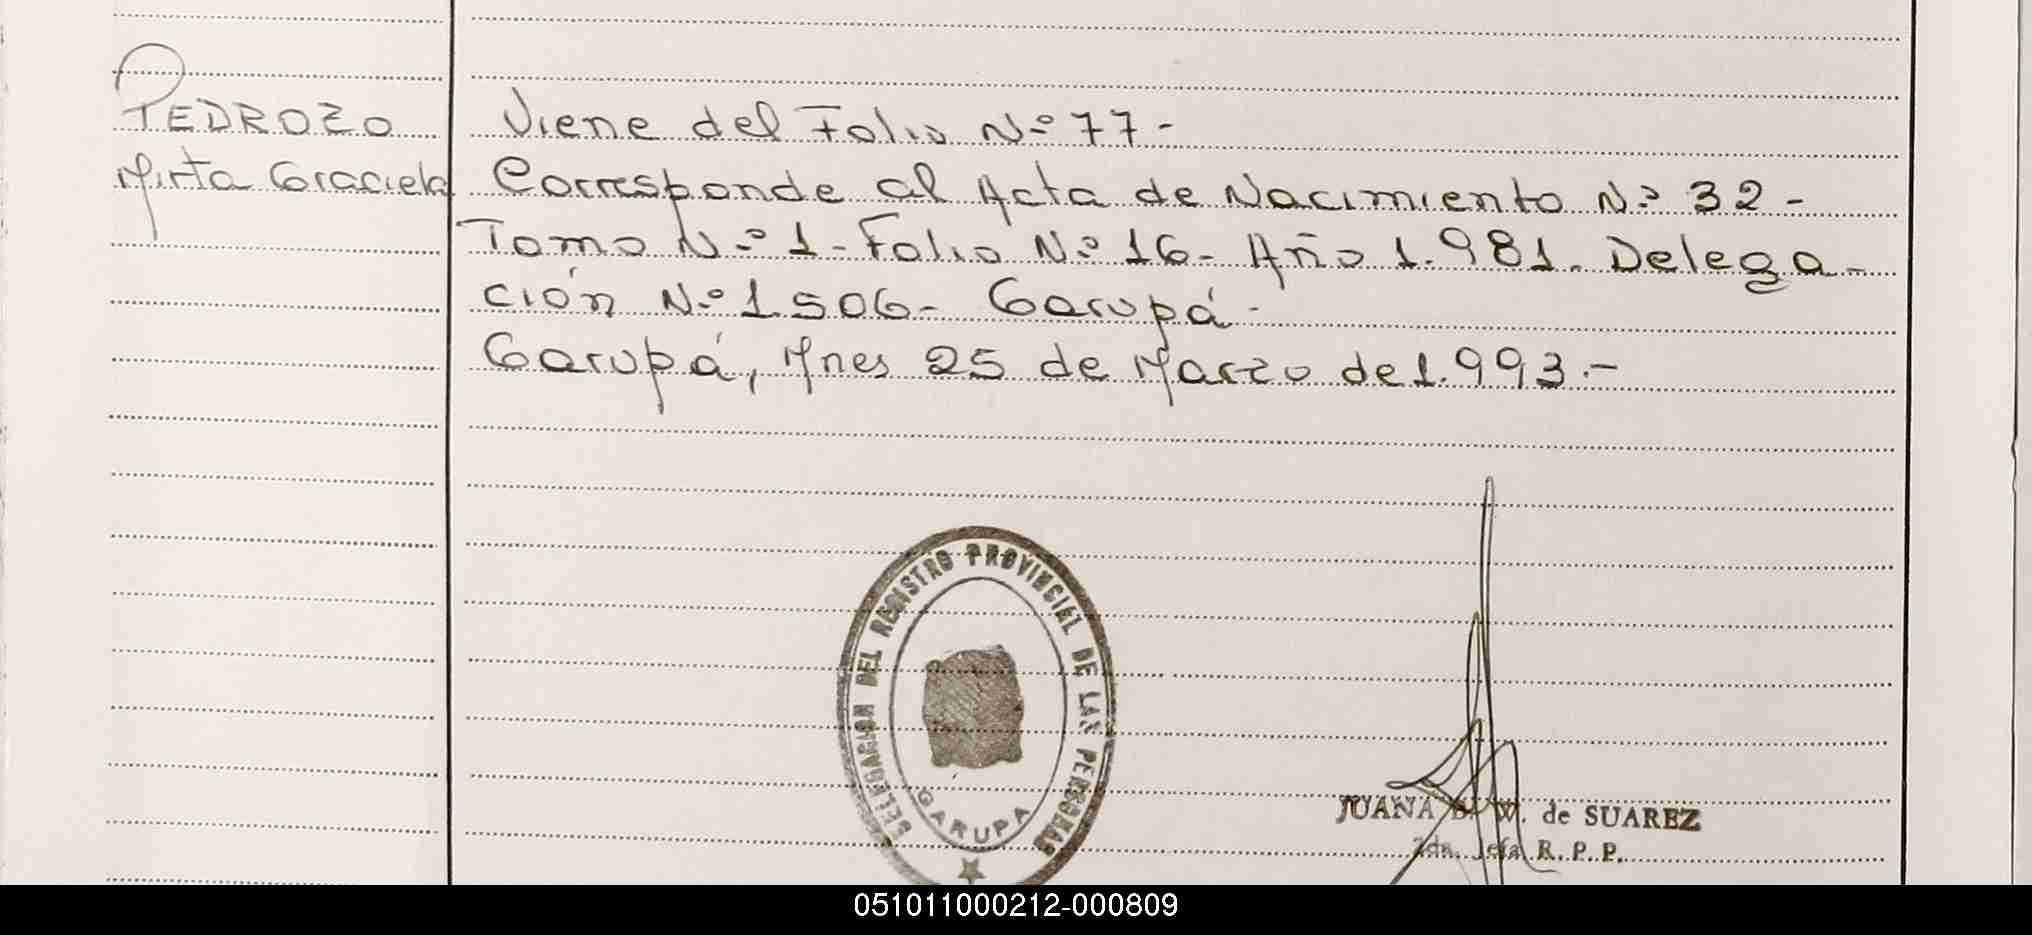 PEDROZO
Mirta Graciela
Viene del Folio Nº 77-
Corresponde al Acta de Nacimiento Nº 32-
Tomo Nº 1- Folio Nº 16- Año 1.981. Delega-
ción Nº 1.506- Garupá-
Garupá, Mnes 25 de Marzo de 1.993.-
DELEGACION DEL REGISTRO PROVINCIAL DE LAS PERSONAS
GARUPA
JUANA B. W. de SUAREZ
2da. Jefa R. P. P.
051011000212-000809